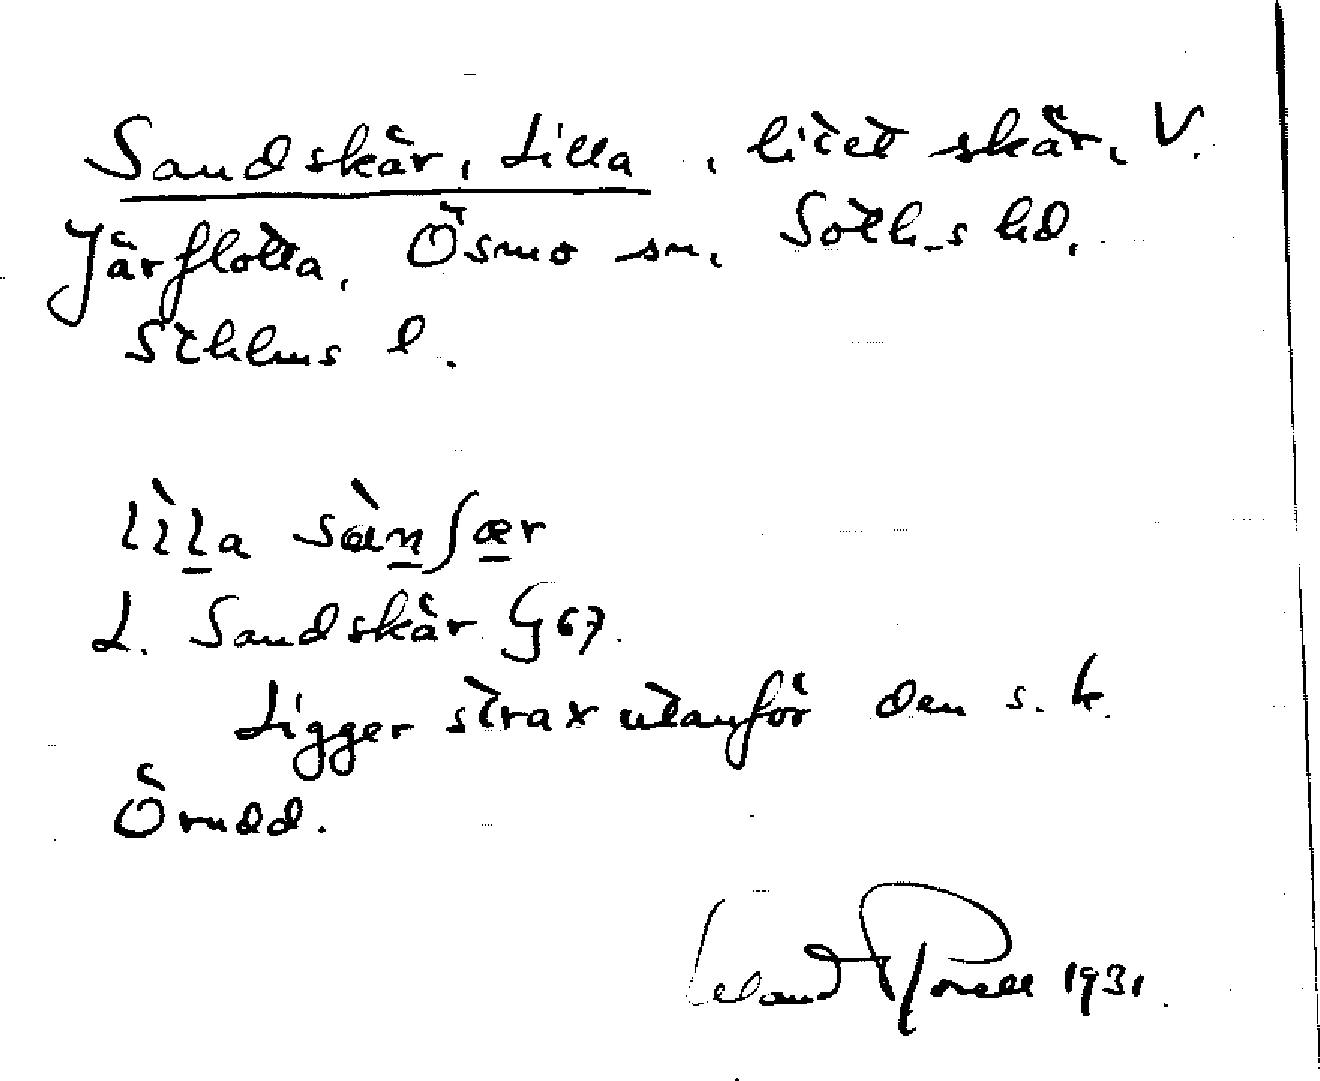 Sandskär, Lilla, litet skär, V.
Järflotta, Ösmo sn, Soth-s hd,
Sthlms l.
lìl̲a sàn̲ʃæ̲r
L. Sandskär G 67.
Ligger strax utanför den s. k.
Örudd.
1931.